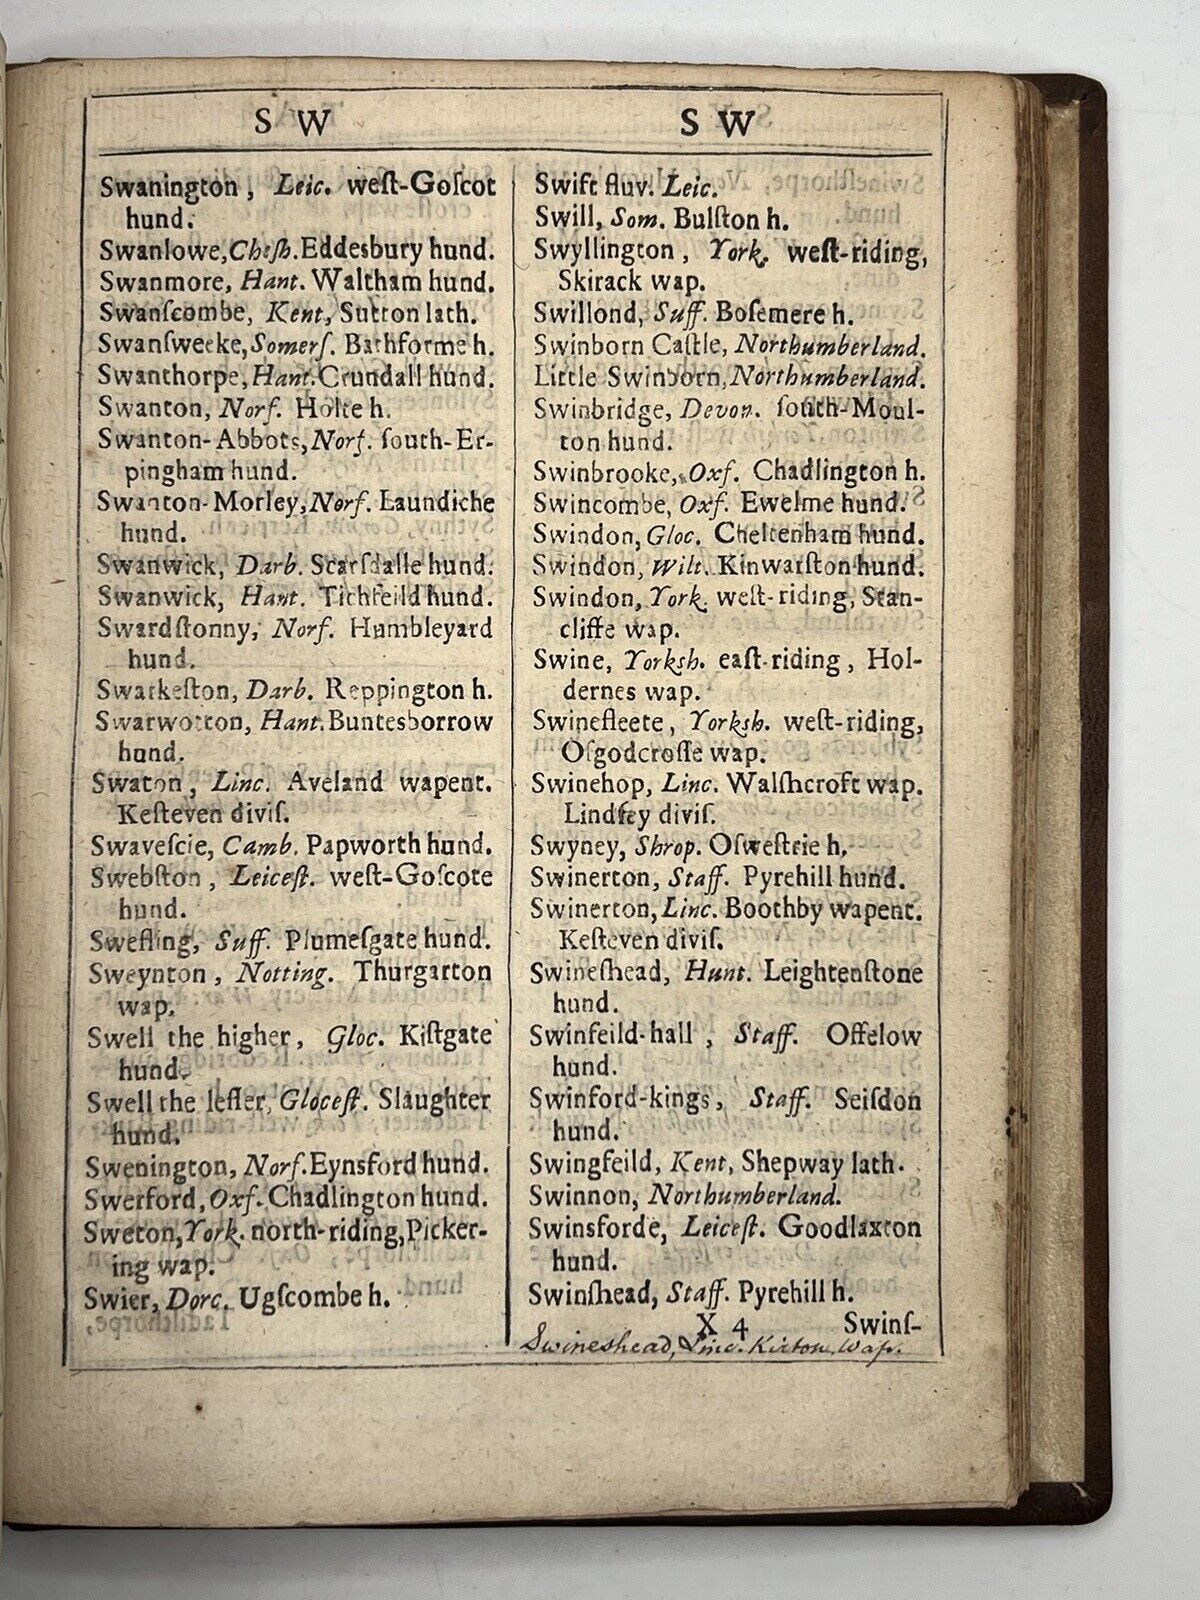 S W
Swanington, Leic. weſt-Goſcot
hund.
Swanlowe, Cheſh. Eddesbury hund.
Swanmore, Hant. Waltham hund.
Swanſcombe, Kent, Sutton lath.
Swanſweeke, Somerſ. Bathforme h.
Swanthorpe, Hant. Crundall hund.
Swanton, Norf. Holte h.
Swanton-Abbots, Norf. ſouth-Er-
pingham hund.
Swanton-Morley, Norf. Laundiche
hund.
Swanwick, Darb. Scarſdalle hund.
Swanwick, Hant. Tichfeild hund.
Swardſtonny, Norf. Humbleyard
hund.
Swarkeſton, Darb. Reppington h.
Swarwotton, Hant. Buntesborrow
hund.
Swaton, Linc. Aveland wapent.
Keſteven diviſ.
Swaveſcie, Camb. Papworth hund.
Swebſton, Leiceſt. weſt-Goſcote
hund.
Swefling, Suff. Plumeſgate hund.
Sweynton, Notting. Thurgarton
wap.
Swell the higher, Gloc. Kiſtgate
hund.
Swell the leſſer, Gloceſt. Slaughter
hund.
Swenington, Norf. Eynsford hund.
Swerford, Oxf. Chadlington hund.
Sweton, York. north-riding, Picker-
ing wap.
Swier, Dorc. Ugſcombe h.
S W
Swift fluv. Leic.
Swill, Som. Bulſton h.
Swyllington, York. weſt-riding,
Skirack wap.
Swillond, Suff. Boſemere h.
Swinborn Caſtle, Northumberland.
Little Swinborn, Northumberland.
Swinbridge, Devon. ſouth-Moul-
ton hund.
Swinbrooke, Oxf. Chadlington h.
Swincombe, Oxf. Ewelme hund.
Swindon, Gloc. Cheltenham hund.
Swindon, Wilt. Kinwarſton hund.
Swindon, York. weſt-riding, Stan-
cliffe wap.
Swine, Yorksh. eaſt-riding, Hol-
dernes wap.
Swinefleete, Yorksh. weſt-riding,
Oſgodcroſſe wap.
Swinehop, Linc. Walſhcroft wap.
Lindſey diviſ.
Swyney, Shrop. Oſweſtrie h.
Swinerton, Staff. Pyrehill hund.
Swinerton, Linc. Boothby wapent.
Keſteven diviſ.
Swineſhead, Hunt. Leightenſtone
hund.
Swinfeild-hall, Staff. Offelow
hund.
Swinford-kings, Staff. Seiſdon
hund.
Swingfeild, Kent, Shepway lath.
Swinnon, Northumberland.
Swinsforde, Leiceſt. Goodlaxton
hund.
Swinſhead, Staff. Pyrehill h.
X 4 Swinſ-
Swineshead, Linc. Kirton, Wap.